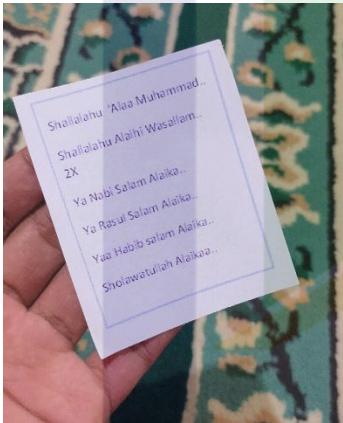 Shallalahu 'Alaa Muhammad..
Shallalahu Alaihi Wasallam..
2X
Ya Nabi Salam Alaika..
Ya Rasul Salam Alaika..
Yaa Habib salam Alaika..
Sholawatullah Alaikaa..